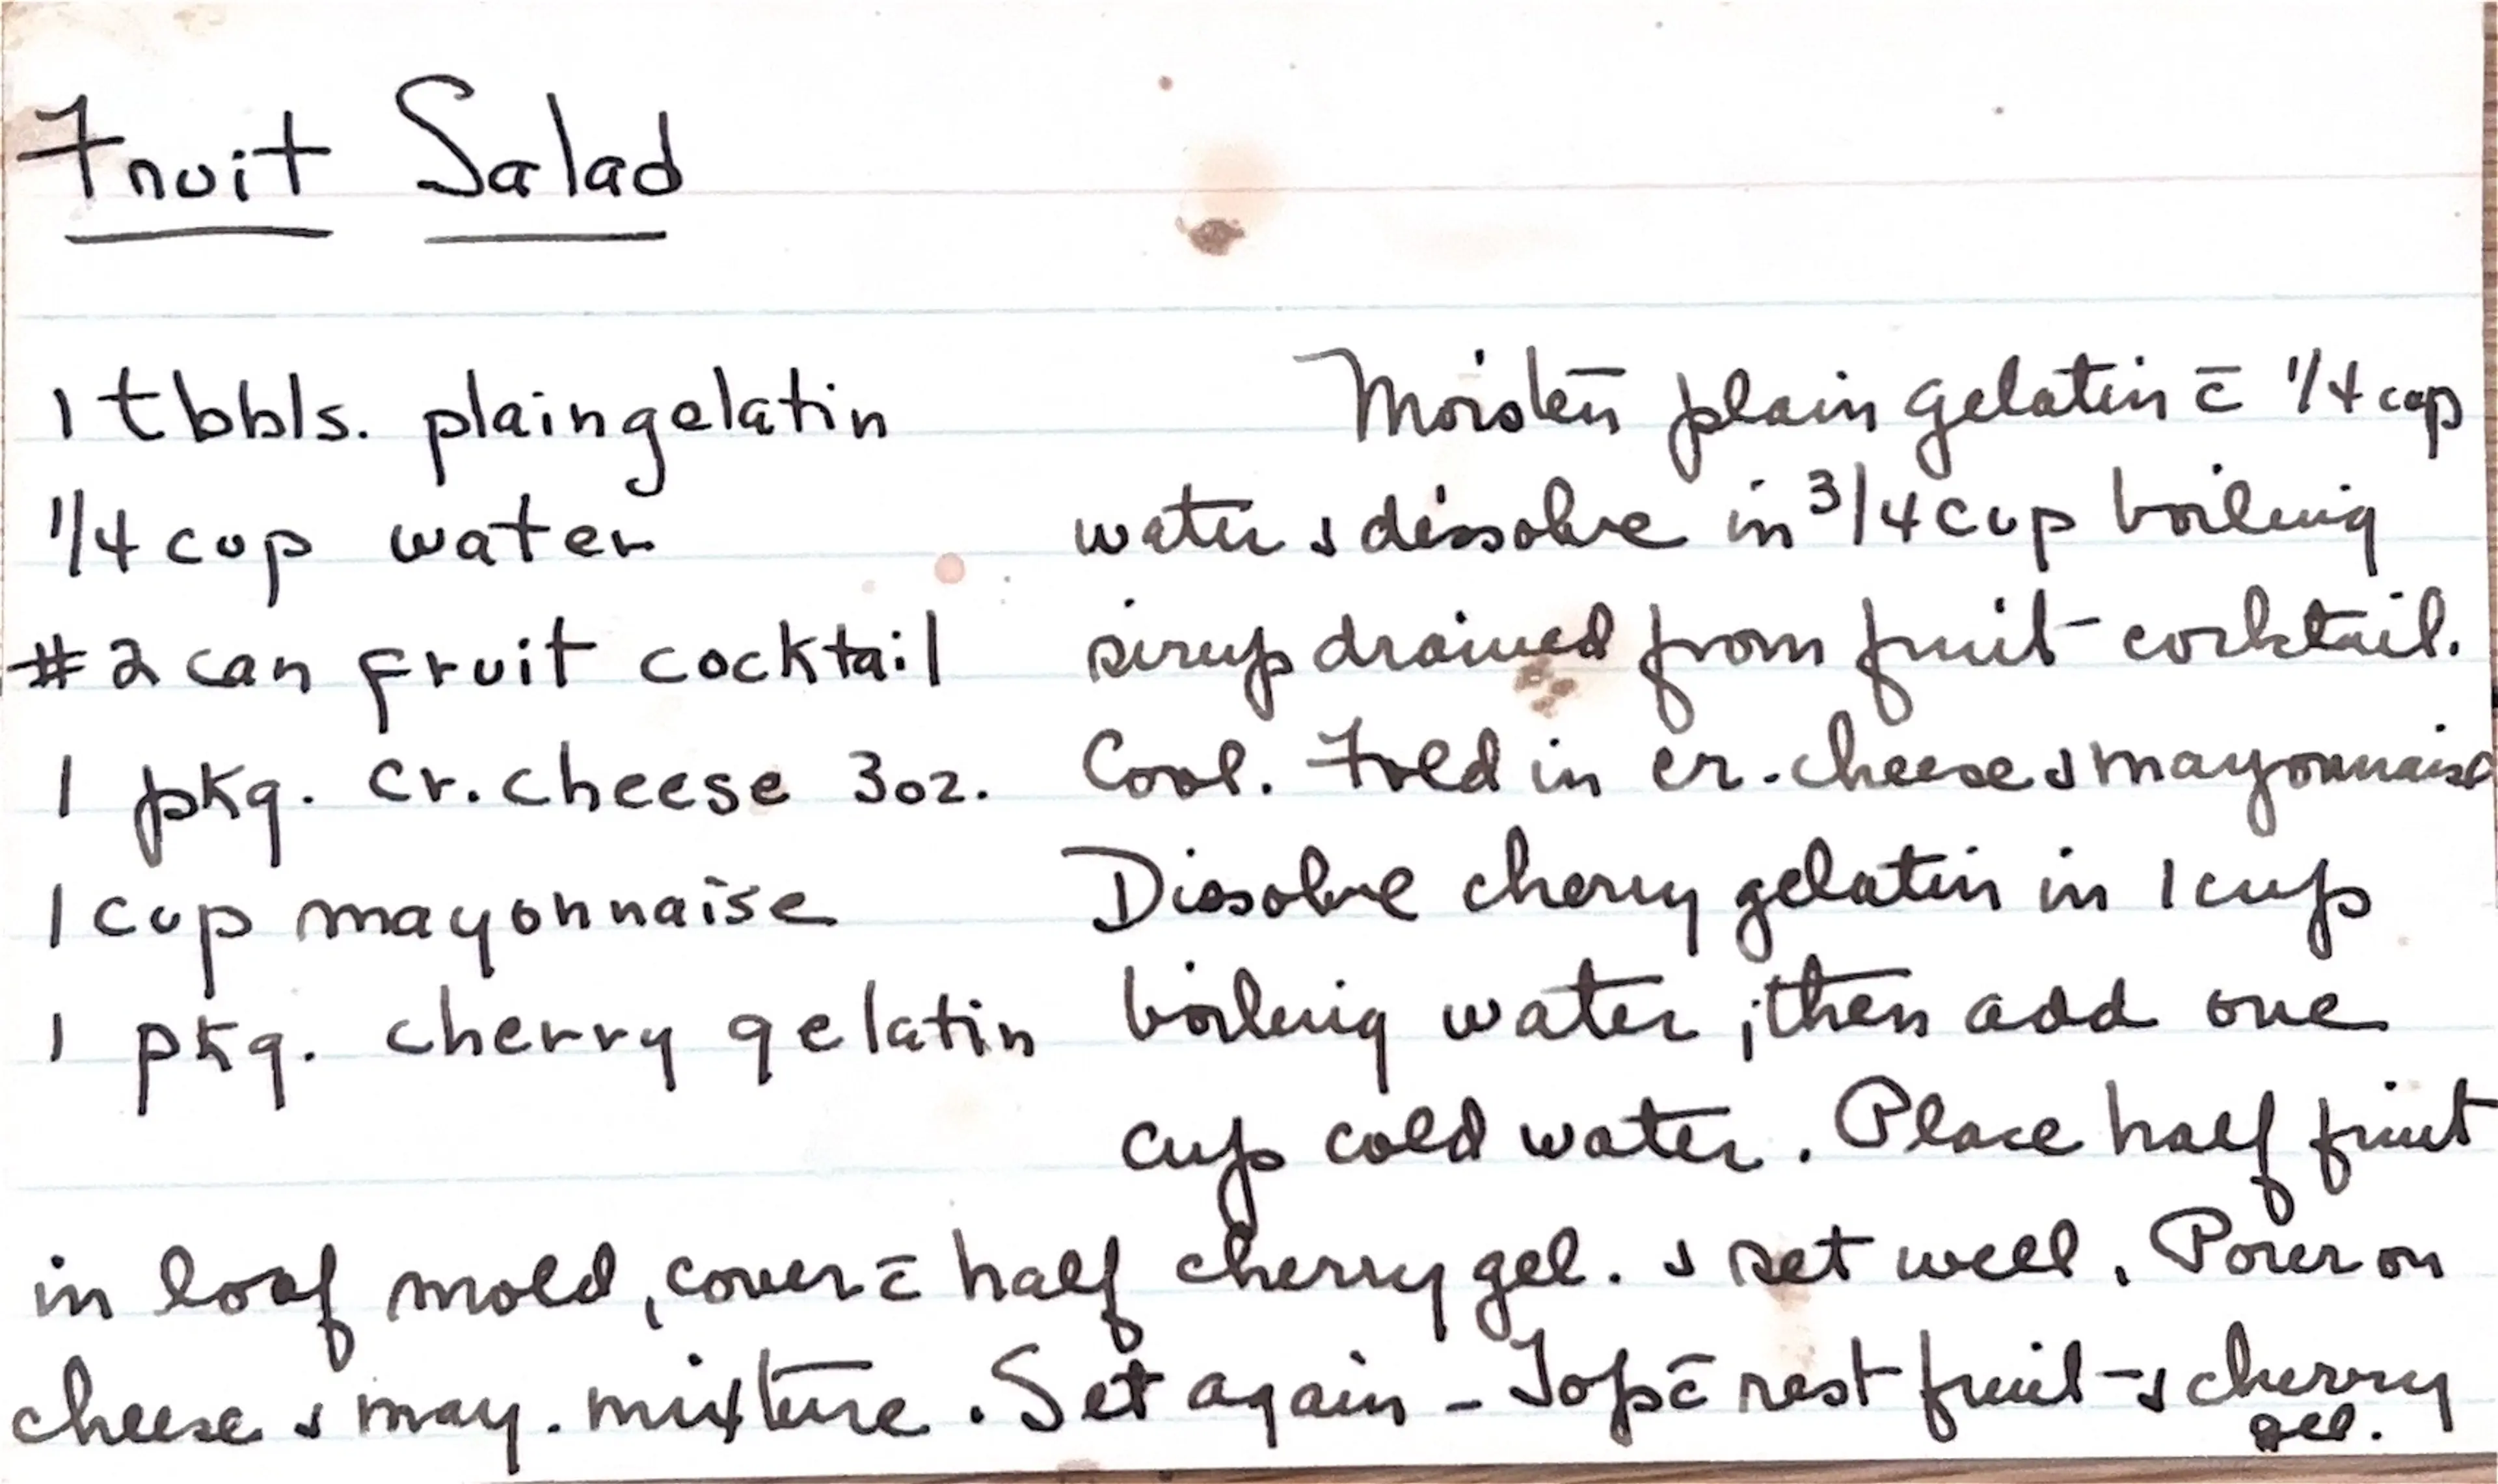 Fruit Salad
1 tbbls. plain gelatin
1/4 cup water
#2 can fruit cocktail
1 pkg. cr. cheese 3oz.
1 cup mayonnaise
1 pkg. cherry gelatin
Moisten plain gelatin c̄ 1/4 cup
water & dissolve in 3/4 cup boiling
sirup drained from fruit cocktail.
Cool. Fold in cr. cheese & mayonnaise
Dissolve cherry gelatin in 1 cup
boiling water; then add one
cup cold water. Place half fruit
in loaf mold, cover c̄ half cherry gel. & set well. Pour on
cheese & may. mixture. Set again - Top c̄ rest fruit & cherry
gel.